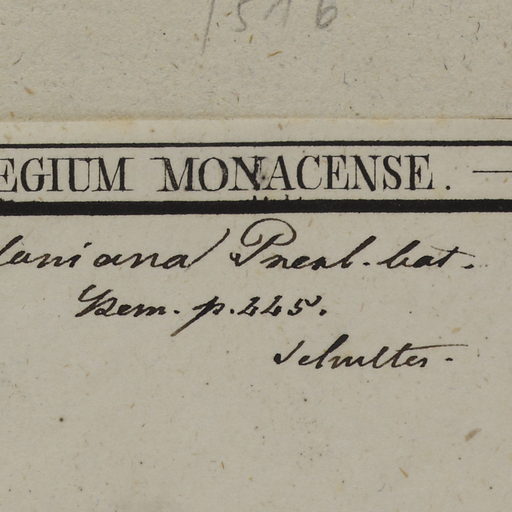 1516
EGIUM MONACENSE.
laniana Prenl. bat.
Rem. p. 225.
Schultes.